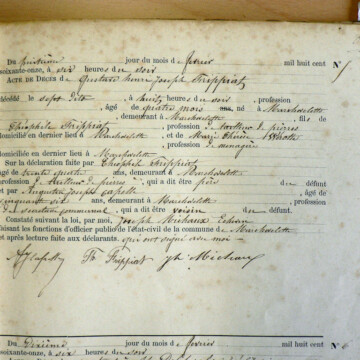 Du huitième jour du mois de février mil huit cent
soixante-onze, à six heures du soir N° 1
ACTE DE DÉCÈS de Gustave henri Joseph Frippiat
décédé le sept dito, à huit heures du soir, profession
, âgé de quatre mois an, né à Marchovelette
, demeurant à Marchovelette, fils de
Théophile Frippiat, profession de tailleur de pierres
domicilié en dernier lieu à Marchovelette et de Marie Thérèse
, profession de ménagère
domiciliée en dernier lieu à Marchovelette
Sur la déclaration faite par Théophile Frippiat
âgé de trente quatre ans, demeurant à Marchovelette
profession de tailleur de pierres, qui a dit être père du défunt
et par Augustin Joseph, âgé de
cinquante six ans, demeurant à Marchovelette, profession
de communal, qui a dit être voisin du défunt
Constaté suivant la loi, par moi, Joseph Michaux Echevin
faisant les fonctions d'officier public de l'état-civil de la commune de Marchovelette
et après lecture faite aux déclarants, qui ont signé avec moi
Th Frippiat Jh Michaux
Du Dixième jour du mois de février mil huit cent
soixante-onze, à six heures du soir N°